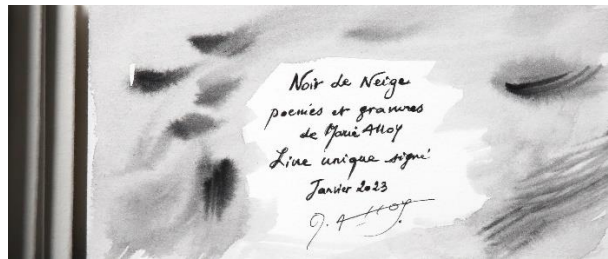 Noir de Neige
poèmes et gravures
de Marie Alloy
Livre unique signé
Janvier 2023
M. Alloy